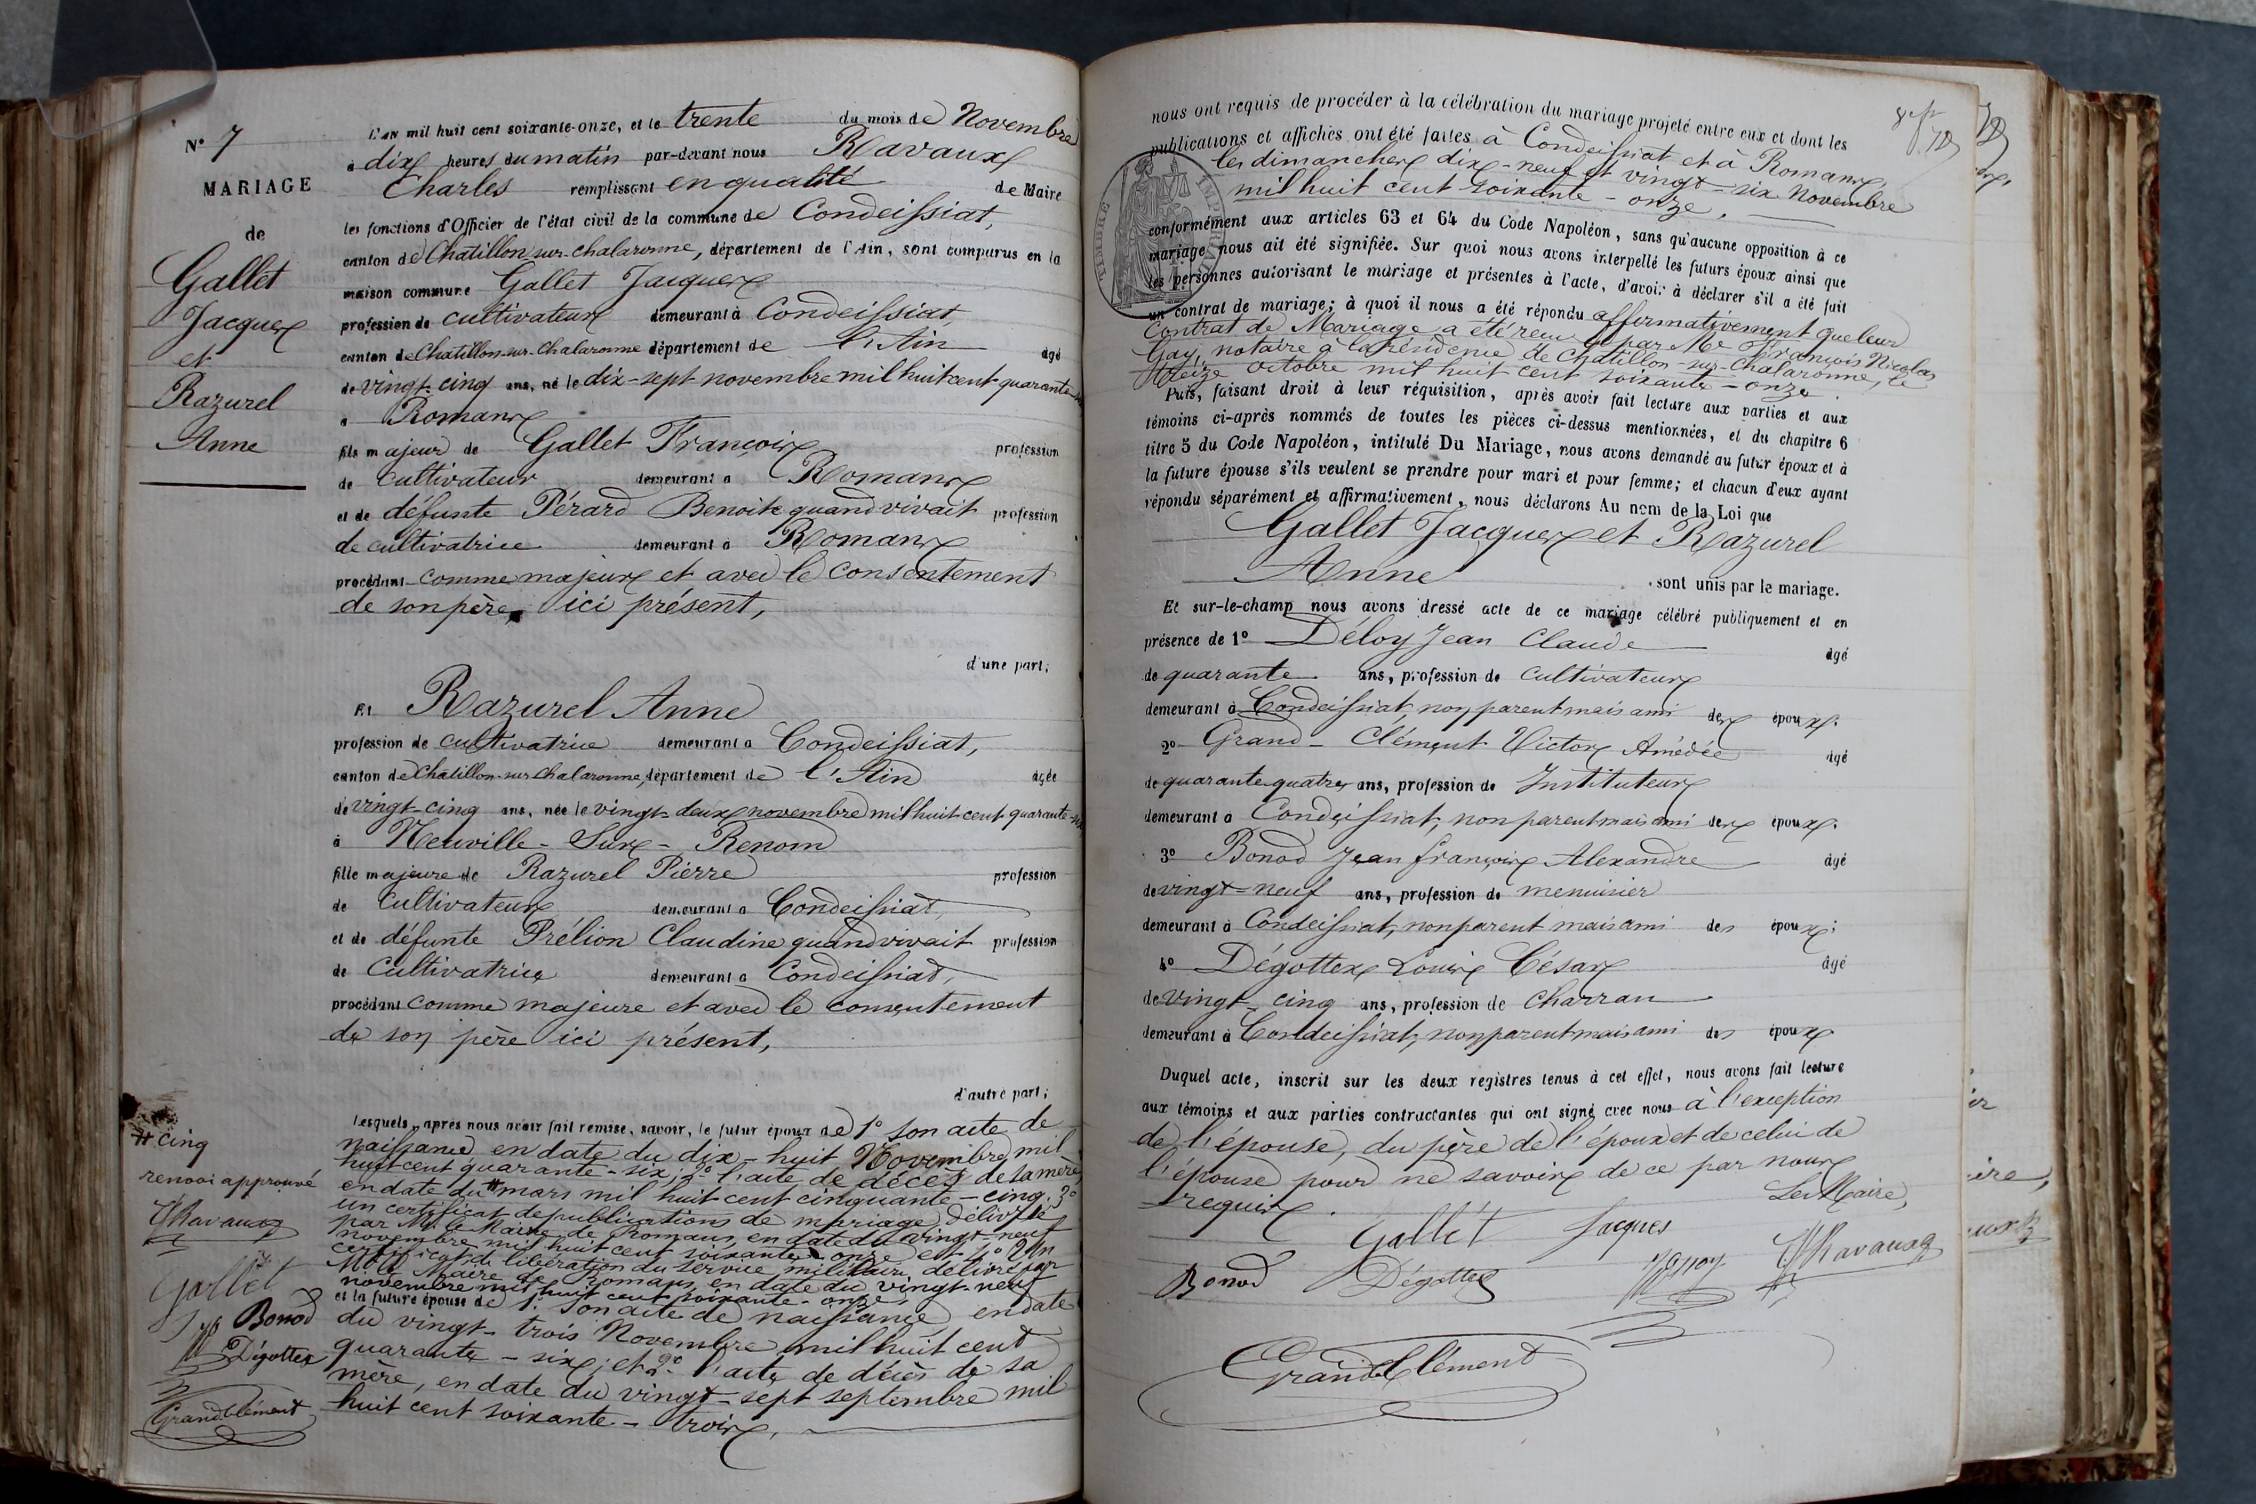 N° 7
MARIAGE
de
Gallet
Jacques
et
Razurel
Anne
L'an mil huit cent soixante-onze, et le trente du mois de Novembre
à dix heures du matin par-devant nous Ravaux
Charles remplissant en qualité de Maire
les fonctions d'Officier de l'état civil de la commune de Condeissiat,
canton de Chatillon-sur-chalaronne, département de l'Ain, sont comparus en la
maison commune Gallet Jacques
profession de cultivateur demeurant à Condeissiat,
canton de Chatillon-sur-Chalaronne département de l'Ain âgé
de vingt-cinq ans, né le dix-sept novembre mil huit cent quarante-six
à Romans
fils majeur de Gallet François profession
de cultivateur demeurant à Romans
et de défunte Pérard Benoite quand vivait profession
de cultivatrice demeurant à Romans
procédant comme majeur et avec le consentement
de son père, ici présent,
d'une part;
Et Razurel Anne
profession de cultivatrice demeurant à Condeissiat,
canton de Chatillon-sur-Chalaronne, département de l'Ain âgée
de vingt-cinq ans, née le vingt-deux novembre mil huit cent quarante-six
à Neuville-Sur-Renom
fille majeure de Razurel Pierre profession
de cultivateur demeurant à Condeissiat,
et de défunte Prélion Claudine quand vivait profession
de Cultivatrice demeurant à Condeissiat,
procédant comme majeure et avec le consentement
de son père ici présent,
d'autre part;
Lesquels, après nous avoir fait remise, savoir, le futur époux de 1° son acte de
naissance en date du dix-huit Novembre mil
huit cent quarante-six; 2° l'acte de décès de sa mère
en date du # mars mil huit cent cinquante-cinq. 3°
un certificat de publications de mariage délivré
par Mr. le Maire de Romans, en date du vingt-neuf
novembre mil huit cent soixante onze et 4° Un
certificat de libération du service militaire délivré par
Mr le Maire de Romans en date du vingt-neuf
novembre mil huit cent soixante-onze,
et la future épouse de 1° son acte de naissance en date
du vingt-trois Novembre mil huit cent
quarante-six; et 2° l'acte de décès de sa
mère, en date du vingt-sept septembre mil
huit cent soixante-trois.
# cinq
renvoi approuvé
Ch Ravaux
Gallet
J
Bonod
Dégottex
Grandclément
8e fr
72
nous ont requis de procéder à la célébration du mariage projeté entre eux et dont les
publications et affiches ont été faites à Condeissiat et à Romans,
les dimanches dix-neuf et vingt-six Novembre
mil huit cent soixante-onze,
conformément aux articles 63 et 64 du Code Napoléon, sans qu'aucune opposition à ce
mariage nous ait été signifiée. Sur quoi nous avons interpellé les futurs époux ainsi que
les personnes autorisant le mariage et présentes à l'acte, d'avoir à déclarer s'il a été fait
un contrat de mariage; à quoi il nous a été répondu affirmativement que leur
Contrat de Mariage a été reçu par Me François Nicolas
Gay, notaire à la résidence de Chatillon-sur-Chalaronne, le
treize octobre mil huit cent soixante-onze.
Puis, faisant droit à leur réquisition, après avoir fait lecture aux parties et aux
témoins ci-après nommés de toutes les pièces ci-dessus mentionnées, et du chapitre 6
titre 5 du Code Napoléon, intitulé Du Mariage, nous avons demandé au futur époux et à
la future épouse s'ils veulent se prendre pour mari et pour femme; et chacun d'eux ayant
répondu séparément et affirmativement, nous déclarons Au nom de la Loi que
Gallet Jacques et Razurel
Anne sont unis par le mariage.
Et sur-le-champ nous avons dressé acte de ce mariage célébré publiquement et en
présence de 1° Déloy Jean Claude âgé
de quarante ans, profession de cultivateur
demeurant à Condeissiat, non parent mais ami des époux;
2° Grand-Clément Victor Amédée âgé
de quarante quatre ans, profession de Instituteur
demeurant à Condeissiat, non parent mais ami des époux;
3° Bonod Jean François Alexandre âgé
de vingt-neuf ans, profession de menuisier
demeurant à Condeissiat, non parent mais ami des époux;
4° Dégottex Louis César âgé
de vingt-cinq ans, profession de charran
demeurant à Condeissiat, non parent mais ami des époux
Duquel acte, inscrit sur les deux registres tenus à cet effet, nous avons fait lecture
aux témoins et aux parties contractantes qui ont signé avec nous à l'exception
de l'épouse, du père de l'époux et de celui de
l'épouse pour ne savoir de ce par nous
requis.
Le Maire,
Gallet Jacques
Ch Ravaux
Bonod Dégottex
Grand Clément